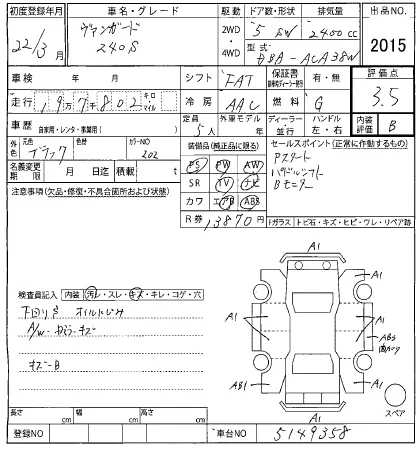 初度登録年月 車名・グレード 駆動 ドア数・形状 排気量 出品NO.
22/3月 ヴァンガード 240S 2WD・4WD 5 SW 2400cc 2015
型式 DBA-ACA38W
車検 年 月 シフト FAT 保証書 有・無 評価点
走行 19万7千802キロ マイル 冷房 AAC 燃料 G 3.5
車歴 自家用・レンタ・事業用( ) 定員 5人 外車モデル 年 ディーラー・並行 ハンドル 左・右 内装評価 B
外色 元色 ブラック 色替 カラーNO 202 装備品(純正品に限る) セールスポイント(正常に作動するもの)
名義変更期限 月 日迄 積載 t PS PW AW Pスタート
注意事項(欠品・修復・不具合箇所および状態) SR TV ナビ パドルシフト
カワ エアB ABS Bモニター
R券 13870円 Fガラス トビ石・キズ・ヒビ・ワレ・リペア跡
A1
A1 A1
A1 A1 AB3
AB1 A1
A1
スペア
検査員記入 内装 汚レ・スレ・キズ・キレ・コゲ・穴
下回りサビ オイルにじみ
A/W ガリキズ
キズ-B
長さ cm 幅 cm 高さ cm
登録NO 車台NO 5149358